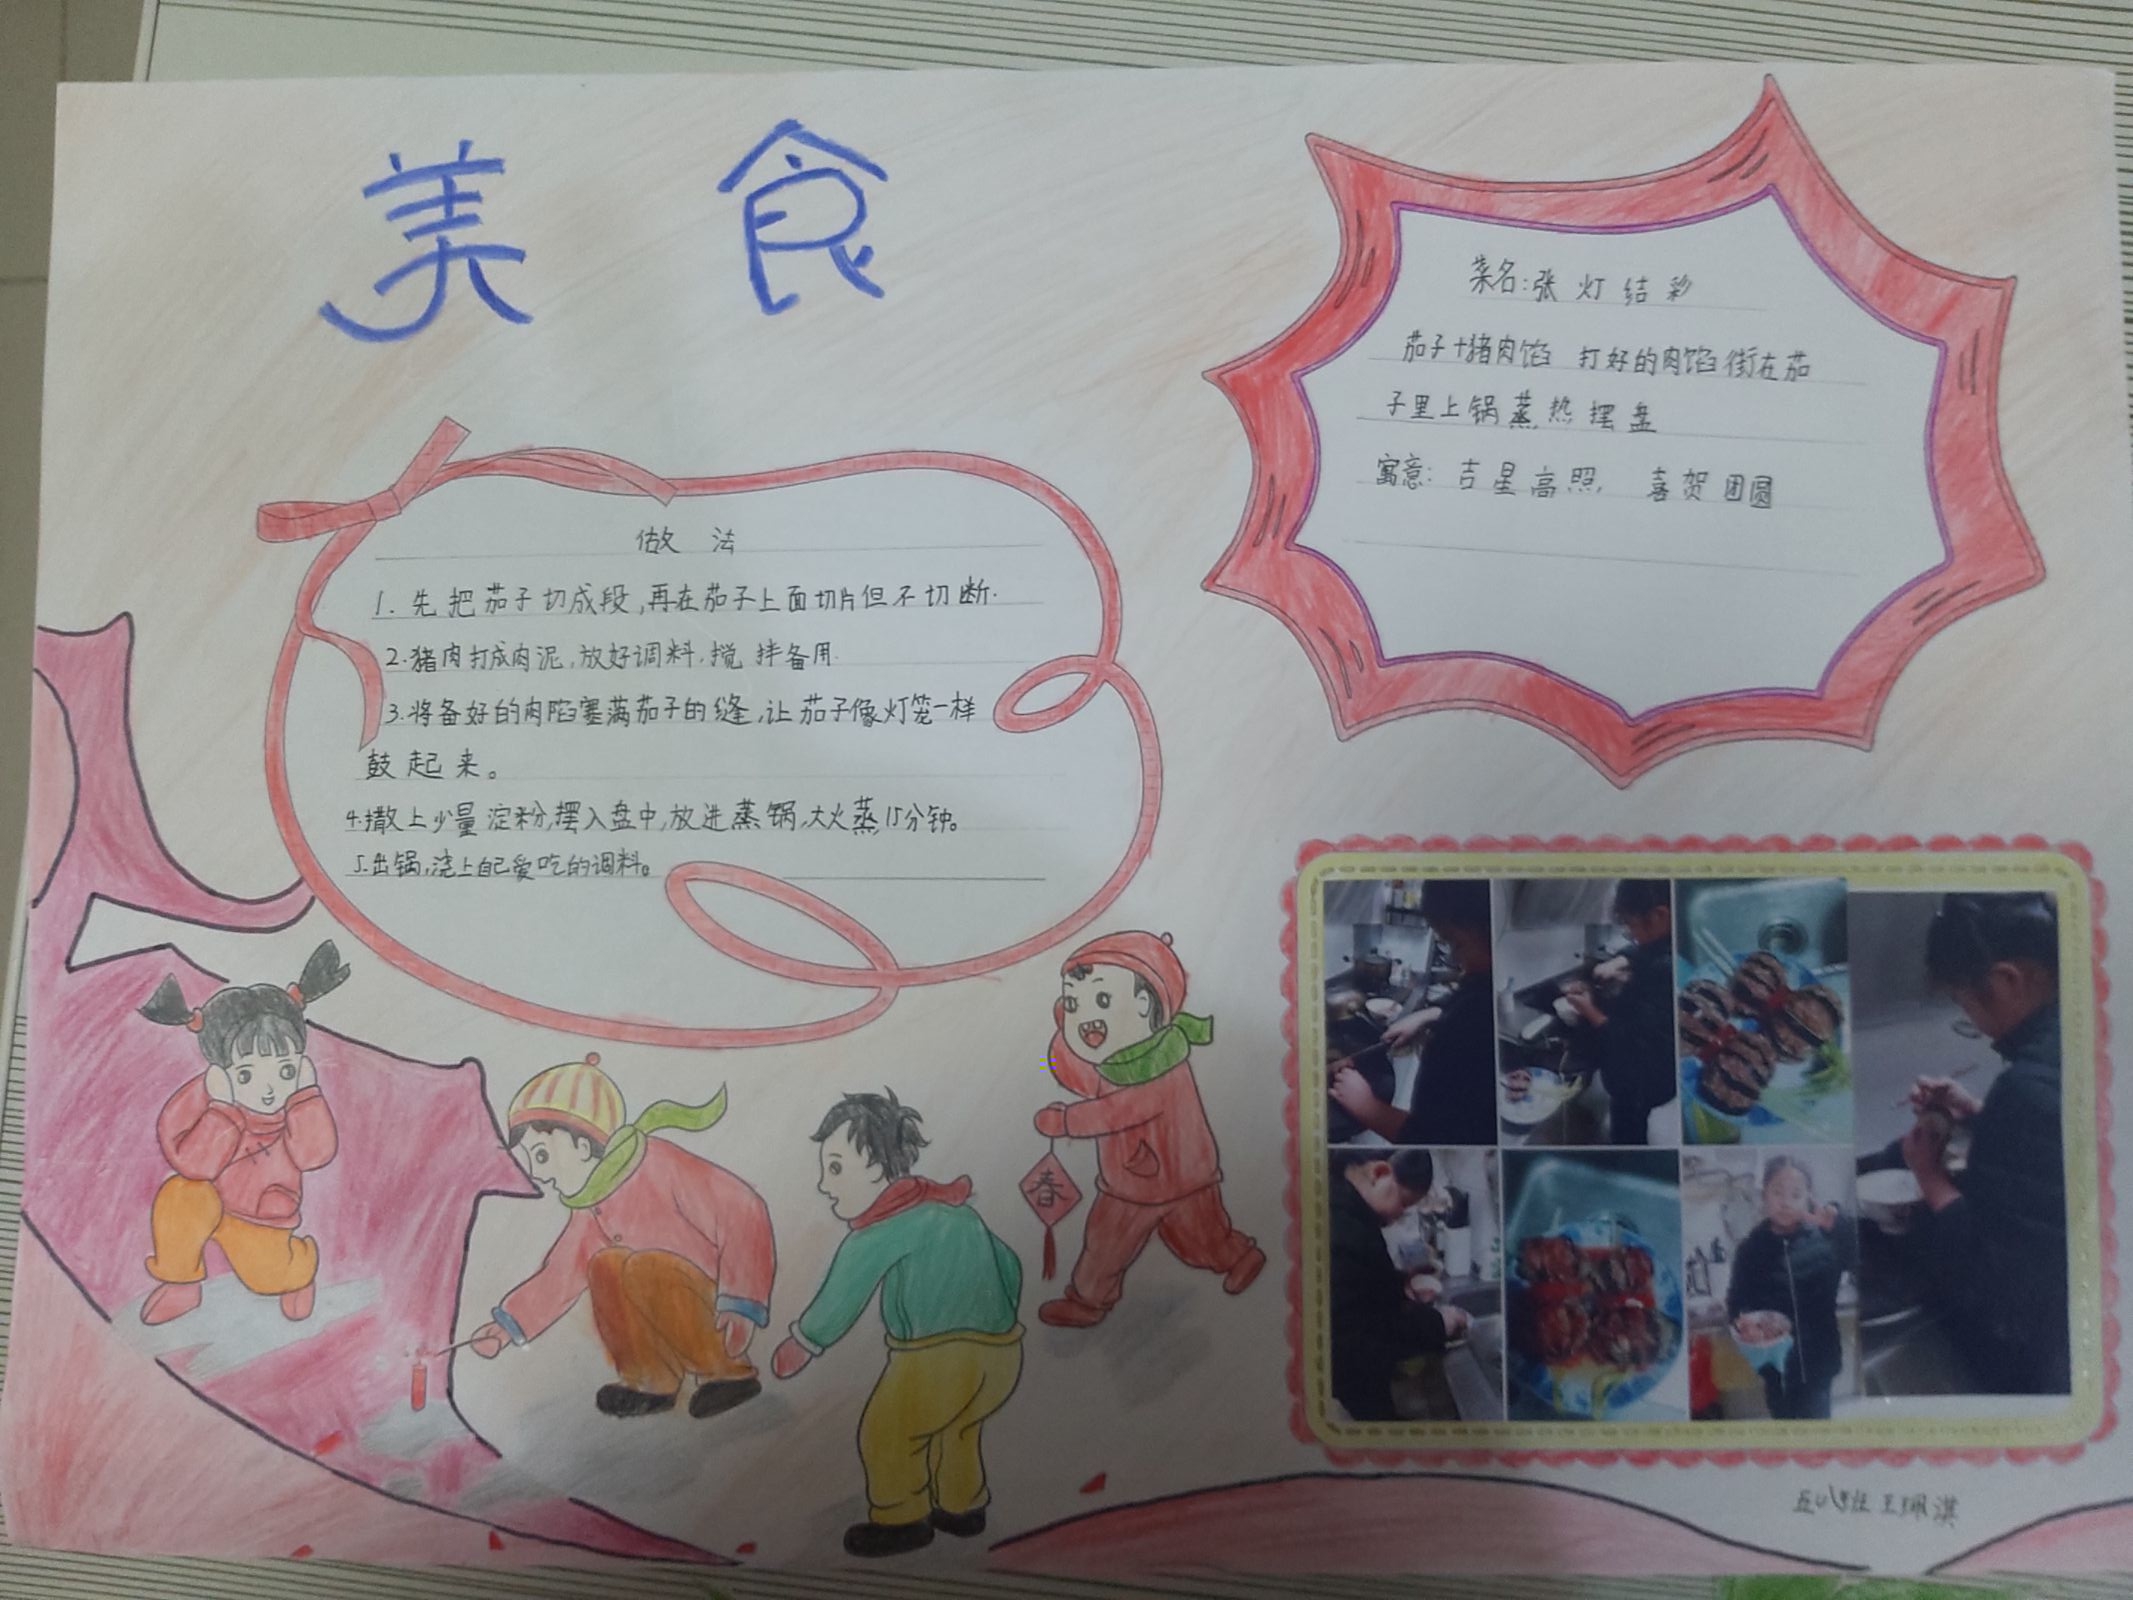 美 食
菜名:张 灯 结 彩
茄子+猪肉馅 打好的肉馅街在茄
子里上锅蒸热摆盘
寓意: 吉星高照, 喜贺团圆
做 法
1. 先把茄子切成段,再在茄子上面切片但不切断.
2.猪肉打成肉泥,放好调料,搅拌备用.
3.将备好的肉陷塞满茄子的缝,让茄子像灯笼一样
鼓起来。
4.撒上少量淀粉,摆入盘中,放进蒸锅,大火蒸15分钟。
5.出锅,浇上自己爱吃的调料。
春
王珮淇